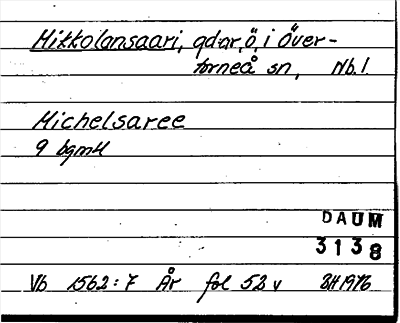 Mikkolansaari, gdar, ö, i Över-
torneå sn, Nb.l.
Michelsaree
9 bgmH
DAUM
3138
Vb 1562:7 År fol 52 v BH 1976